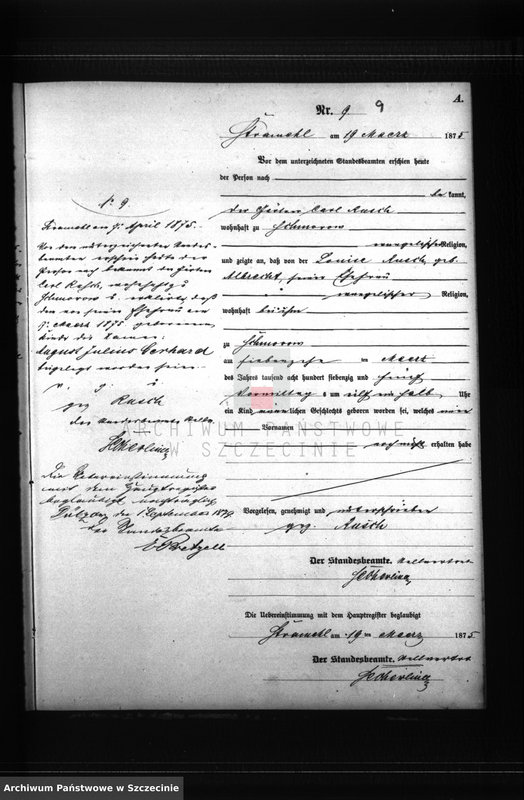 A.
Nr. 9 9
Stramehl am 19 Maerz 1875
Vor dem unterzeichneten Standesbeamten erschien heute
der Person nach
be kannt,
der Carl Rusch
wohnhaft zu Schmorow
evangelischer Religion,
und zeigte an, daß von der Louise Rusch, geb.
Albrecht seiner Ehefrau
evangelischer Religion,
wohnhaft bei ihm
zu Schmorow
am siebenzehn ten Maerz
des Jahres tausend acht hundert siebenzig und fünf
Vormittag s um elf ein halb Uhr
ein Kind männlichen Geschlechts geboren worden sei, welches einen
Vornamen
noch nicht erhalten habe
Vorgelesen, genehmigt und unterschrieben
gez. Rusch
Der Standesbeamte. Stellvertreter
Die Uebereinstimmung mit dem Hauptregister beglaubigt
Stramehl am 19 ten Maerz 1875
Der Standesbeamte. Stellvertreter
No 9
Stramehl am April 1875.
Vor dem unterzeichneten Standes-
beamten erschien heute der
Person nach bekannt der
Carl Rusch, wohnhaft zu
Schmorow u. erklärte, daß
dem von seiner Ehefrau am
Maerz 1875 geborenen
Kinde die Namen:
August Julius Gerhard
beigelegt worden seien.
v. g. u.
gez Rusch
der Standesbeamte Stellv.
Die Uebereinstimmung
mit dem Hauptregister
beglaubigt
den 1 September 1879
Der Standesbeamte
ARCHIWUM PAŃSTWOWE
W SZCZECINIE
Archiwum Państwowe w Szczecinie